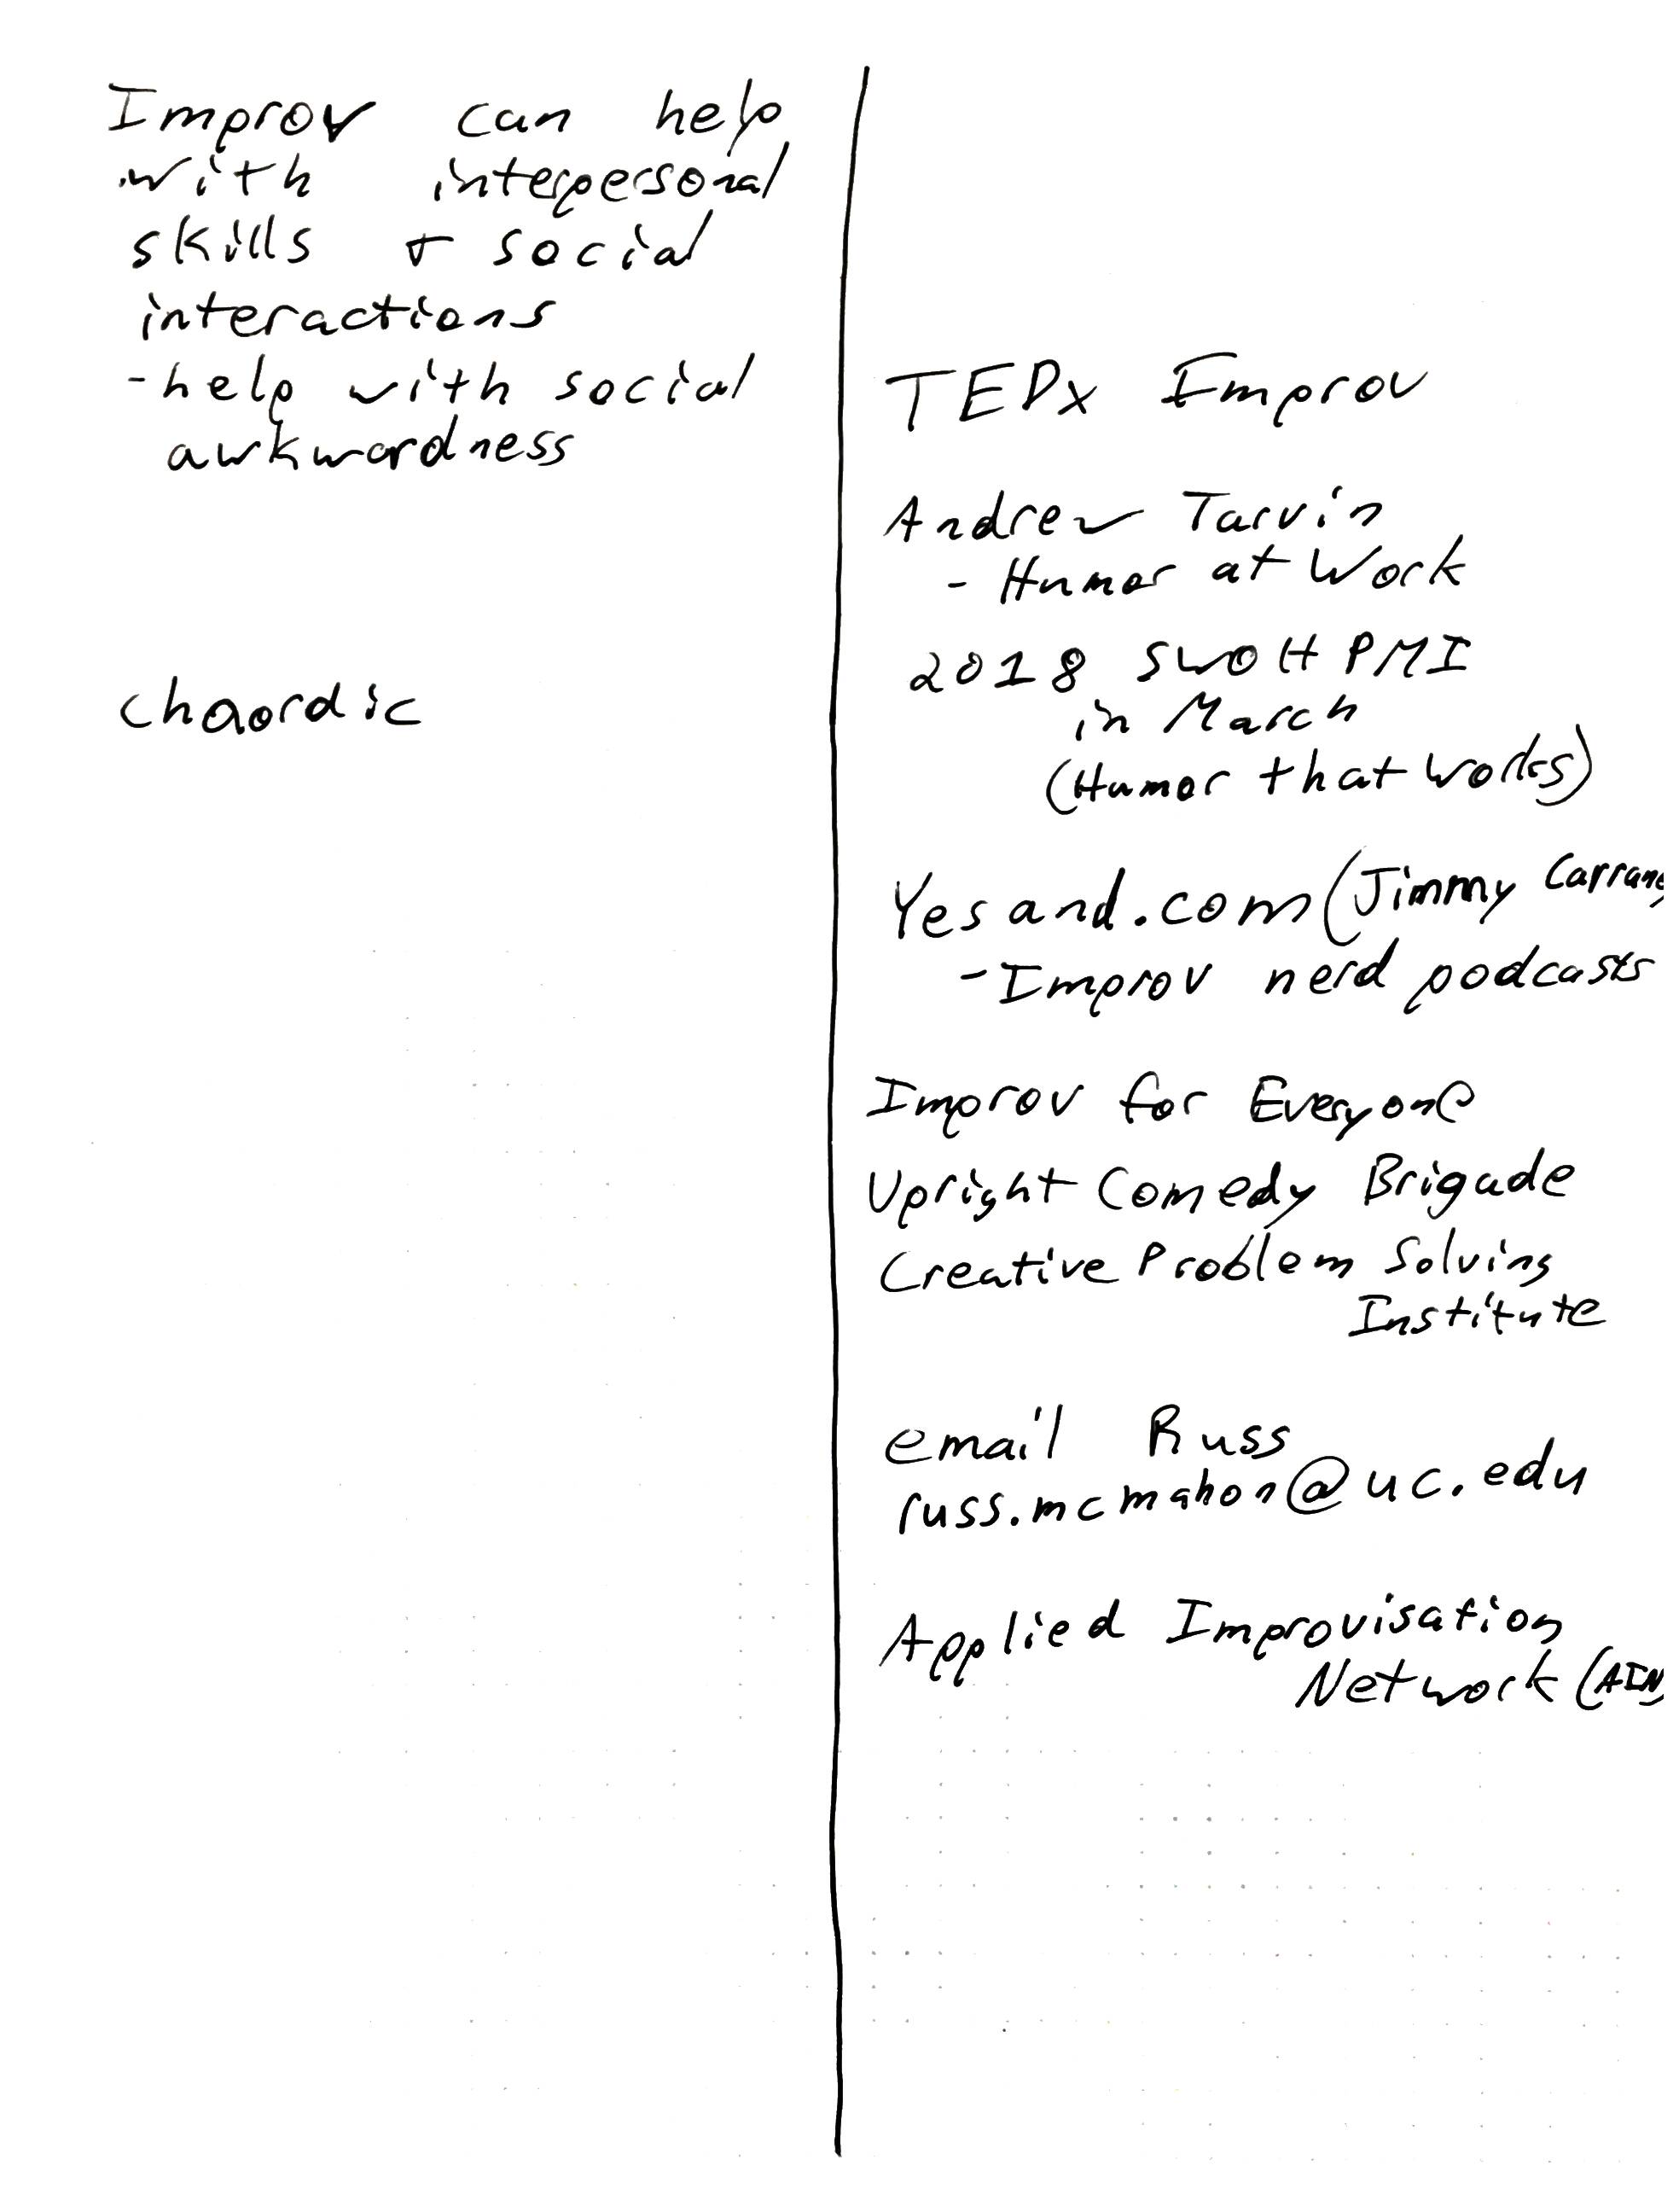 Improv can help
with interpersonal
skills & social
interactions
- help with social
awkwardness
chaordic
TEDx Improv
Andrew Tarvin
- Humor at Work
2018 SWOH PMI
in March
(Humor that Works)
Yesand.com (Jimmy Carrane
- Improv nerd podcasts
Improv for Everyone
Upright Comedy Brigade
Creative Problem Solving
Institute
email Russ
russ.mcmahon@uc.edu
Applied Improvisation
Network (AIN)